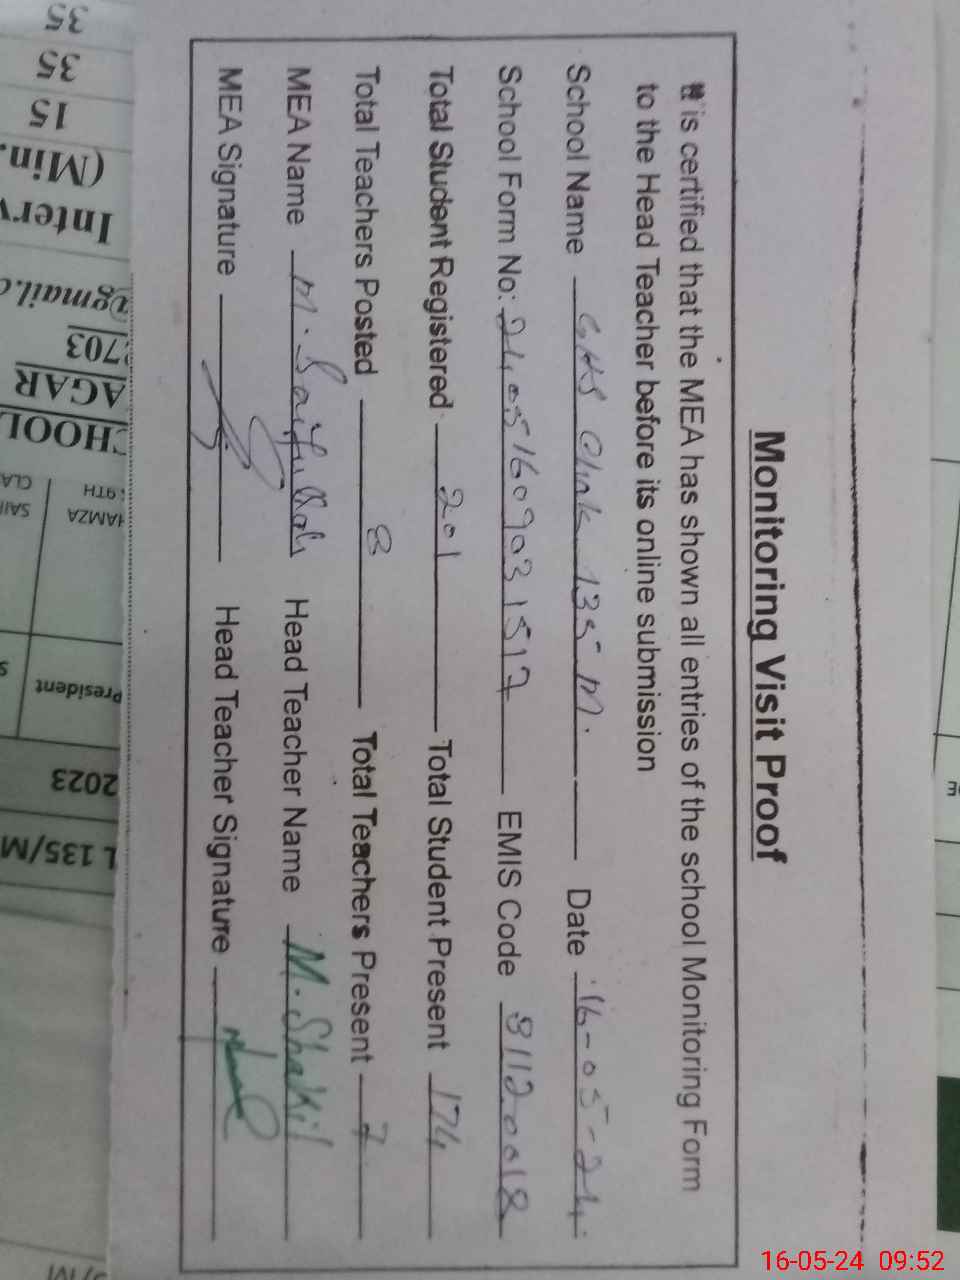 Monitoring Visit Proof
It is certified that the MEA has shown all entries of the school Monitoring Form
to the Head Teacher before its online submission
School Name GHS Chak 135 M. Date 16-05-24
School Form No: 2405160903 1517 EMIS Code 31120018
Total Student Registered 201 Total Student Present 174
Total Teachers Posted 8 Total Teachers Present 7
MEA Name M. Saifullah Head Teacher Name M. Shakil
MEA Signature Head Teacher Signature
35
35
15
(Min.
Interv
@gmail.c
703
AGAR
CHOOL
9TH
HAMZA
CLA
SAIF
President
2023
L 135/M
16-05-24 09:52